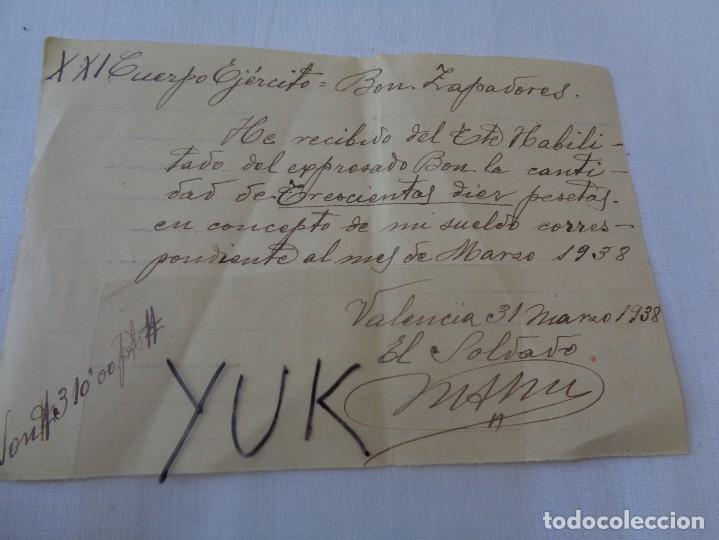 XXI Cuerpo Ejército = Bon. Zapadores.
He recibido del Ete Habili-
tado del expresado Bon. la canti-
dad de Trescientas diez pesetas.
en concepto de mi sueldo corres-
pondiente al mes de Marzo 1938
Valencia 31 Marzo 1938
El Soldado
Son #310'00 pts#
YUK
todocoleccion.net